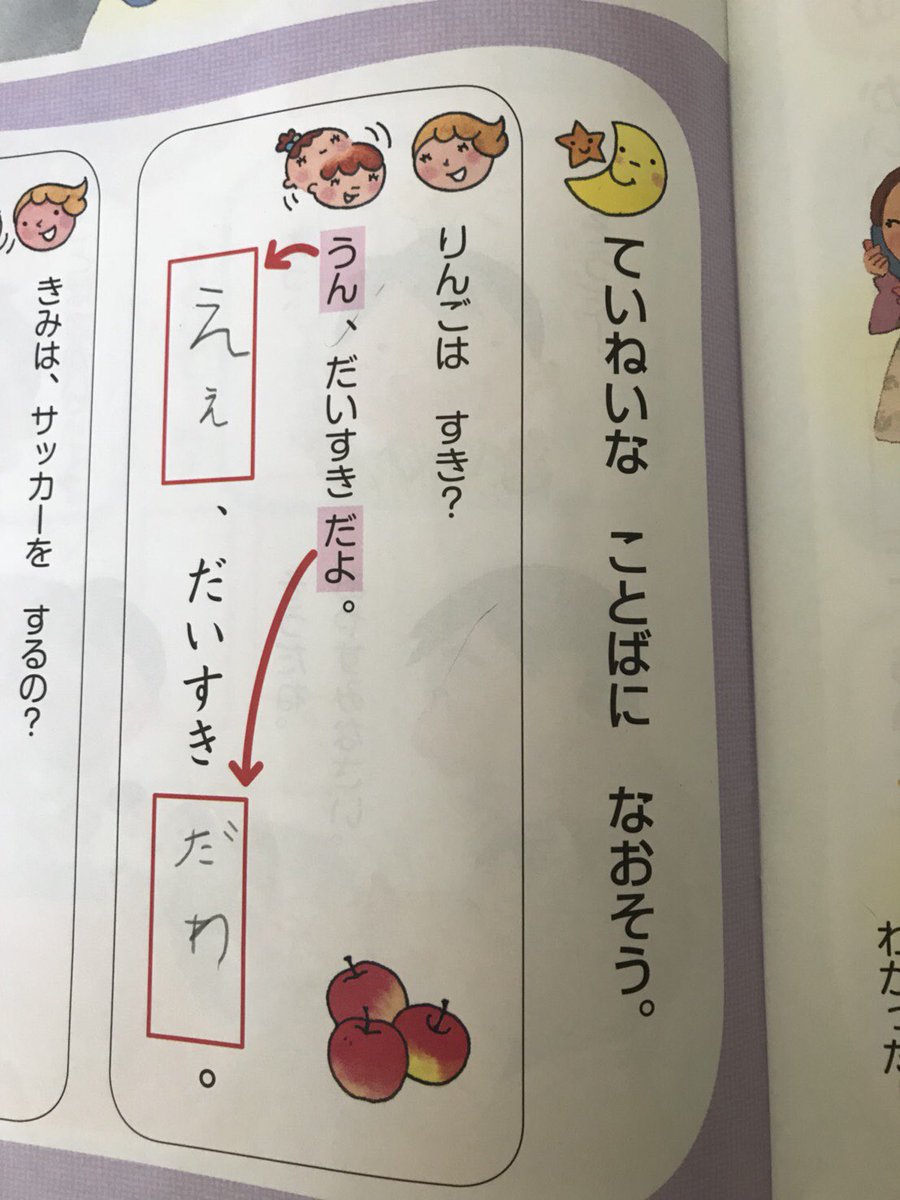 ていねいな ことばに なおそう。
りんごは すき?
うん、だいすきだよ。
えぇ、だいすきだわ。
きみは、サッカーを するの?
わかった